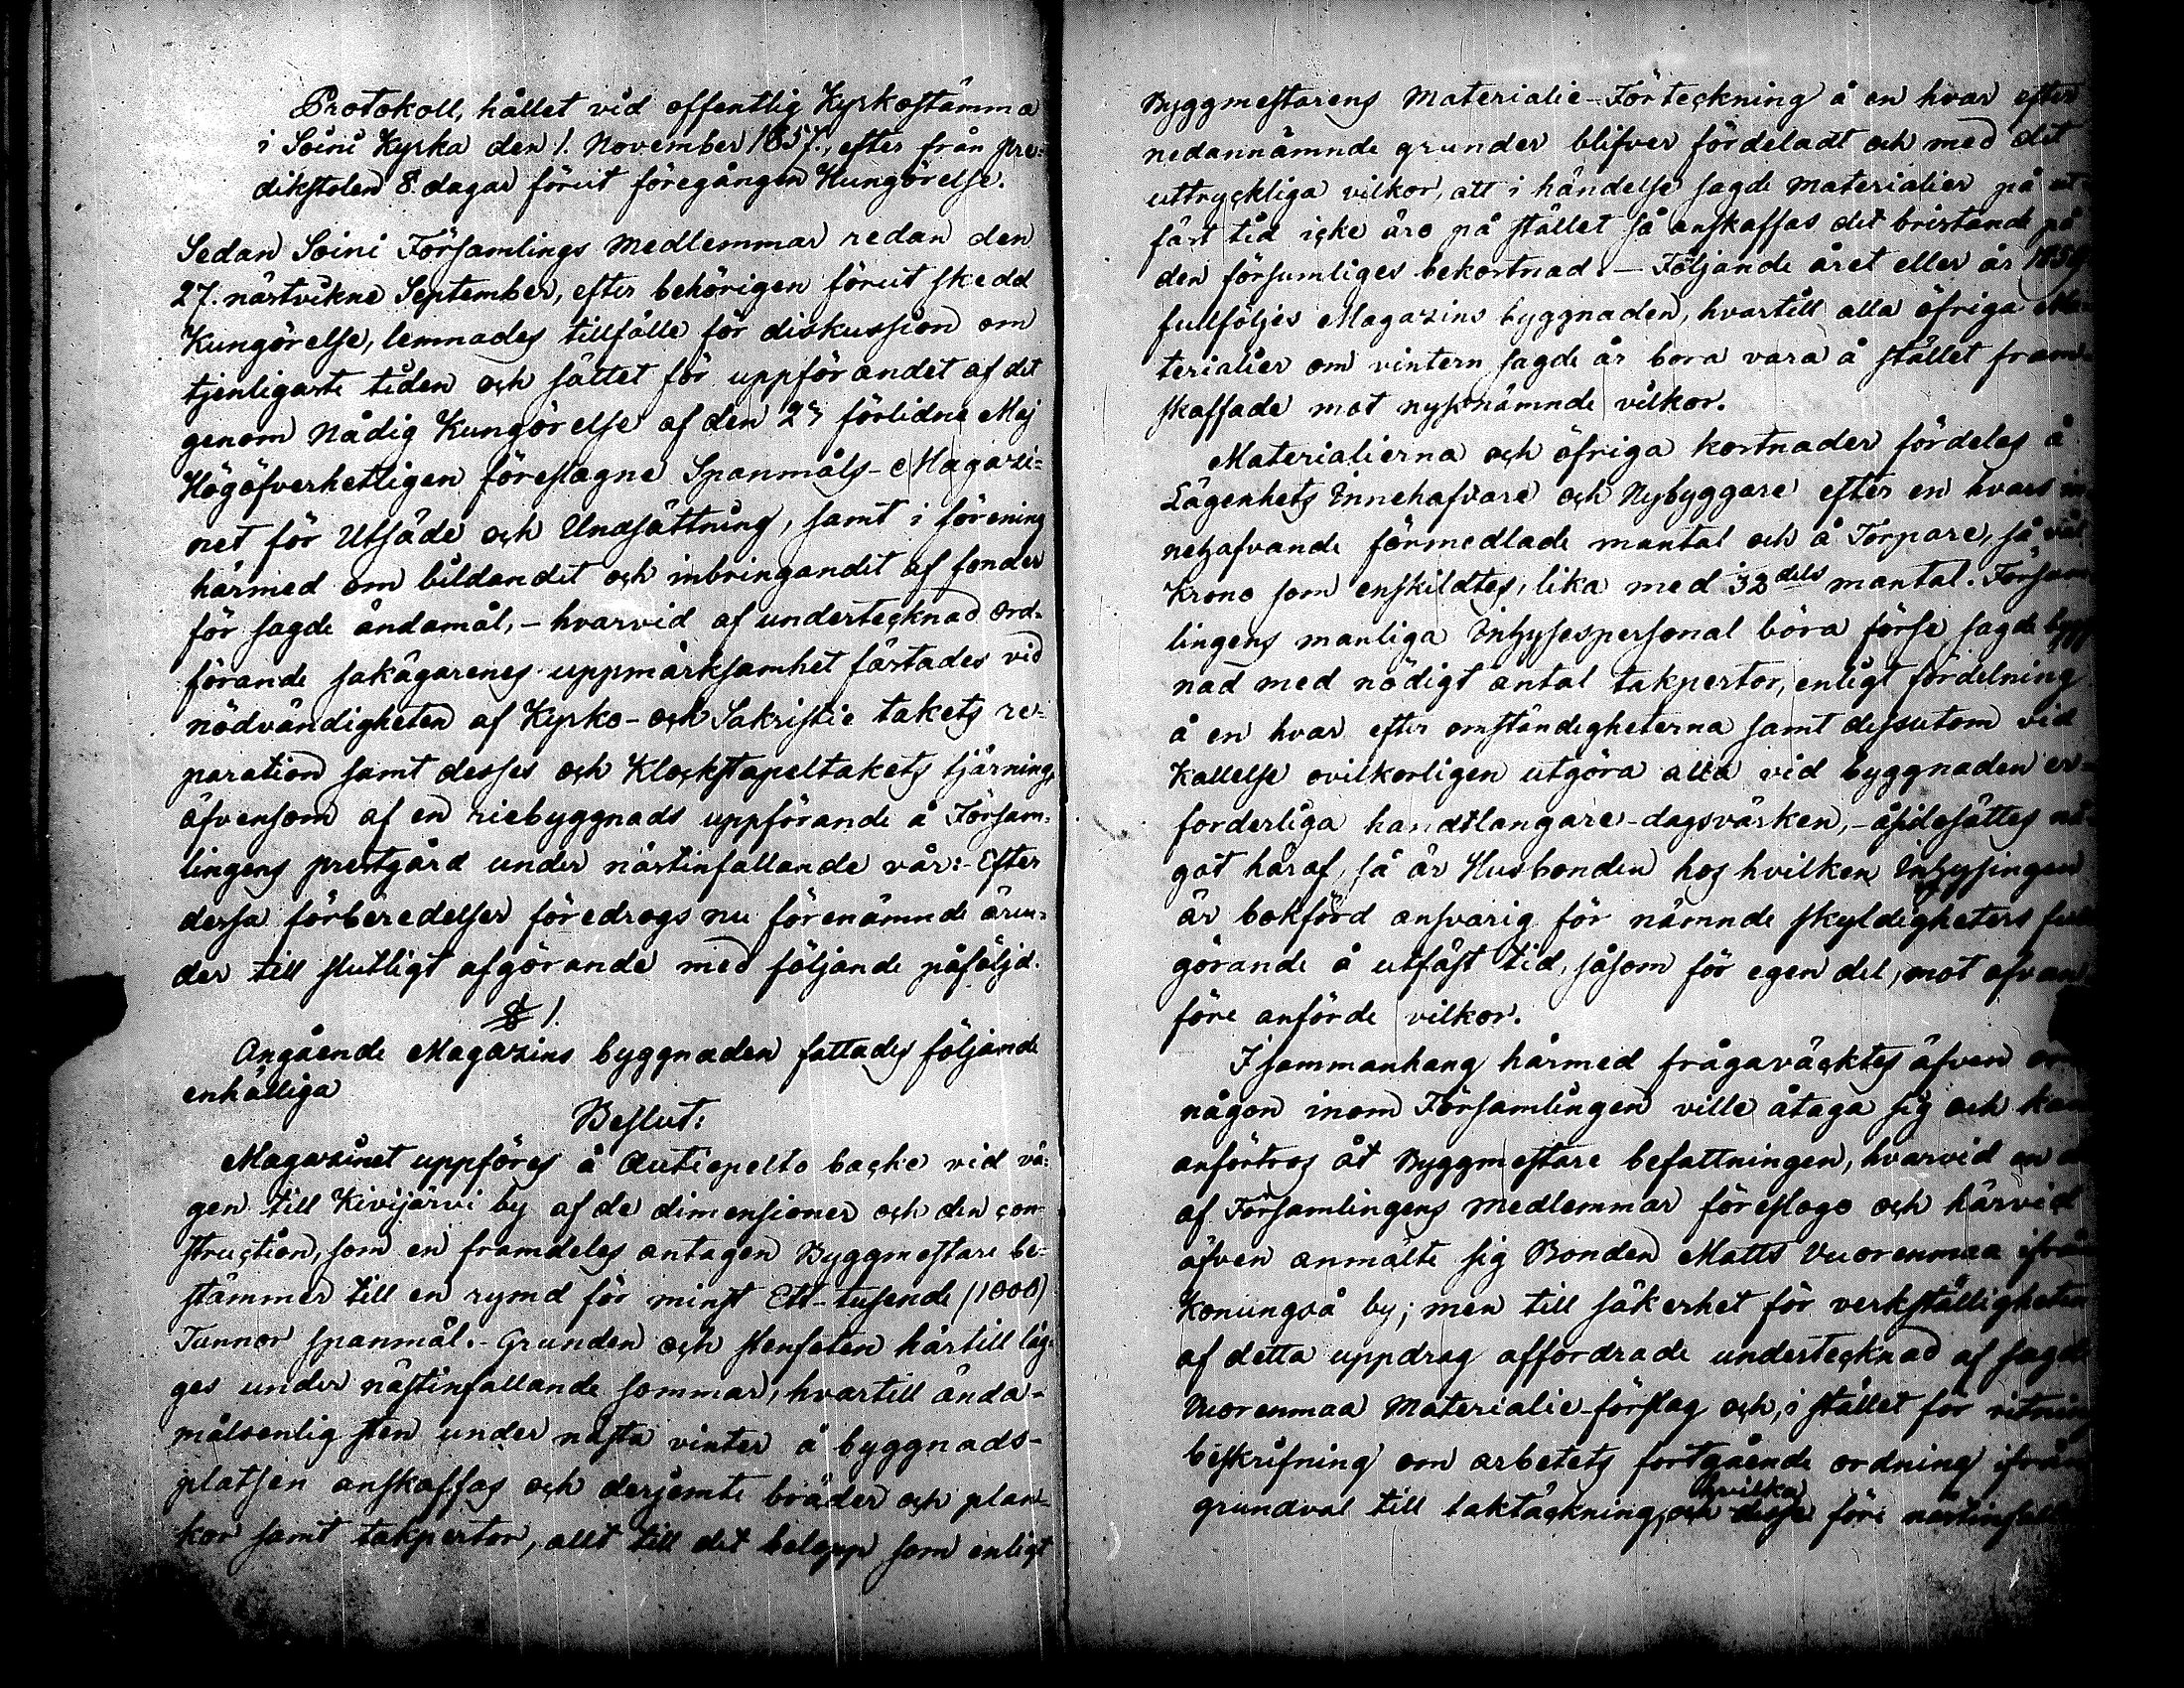 Protokoll, hållet vid offentlig Kyrkostämma
i Soini Kyrka den 1. November 1857, efter från pre-
dikstolen 8. dagar förut föregången Kungörelse.
Sedan Soini Församlings Medlemmar redan den
27. nästvikne September, efter behörigen förut skedd
Kungörelse, lemnades tillfälle för diskussion om
tjenligaste tiden och sättet för uppförandet af det
genom Nådig Kungörelse af den 27 förlidne Maj
Högöfverhetligen föreslagne Spanmåls-Magazi-
net för Utsäde och Undsättning, samt i förening
härmed om bildandet och inbringandet af fonder
för sagde ändamål, - hvarvid af undertecknad Ord-
förande sakägarenes uppmärksamhet fästades vid
nödvändigheten af Kyrko- och Sakristie takets re-
paration samt desses och Klockstapeltakets tjärning,
äfvensom af en riebyggnads uppförande å Försam-
lingens prestgård under nästinfallande vår:- Efter
dessa förberedelser föredrogs nu förenämnde ären-
der till slutligt afgörande med följande påföljd.
§ 1.
Angående Magazins byggnaden fattades följande
enhälliga
Beslut:
Magazinet uppföres å Autiopelto backe vid vä-
gen till Kivijärvi by af de dimensioner och den con-
struction, som en framdeles antagen Byggmestare be-
stämmer till en rymd för minst Ett-tusende (1000)
Tunnor spanmål. - Grunden och stenfoten härtill läg-
ges under nästinfallande sommar, hvartill ända-
målsenlig sten under nästa vinter å byggnads-
platsen anskaffas och derjemte bräder och plan-
kor samt takpertor, allt till det belopp som enligt
Byggmestarens Materialie-Förteckning å en hvar efter
nedannämnde grunder blifver fördeladt och med det
uttryckliga vilkor, att i händelse sagde materialier på ut-
fäst tid icke äro på stället så anskaffas det bristande på
den försumliges bekostnad. - Följande året eller år 1859
fullföljes Magazins byggnaden, hvartill alla öfriga Ma-
terialier om vintern sagde år böra vara å stället fram-
skaffade mot nyssnämnde vilkor.
Materialierna och öfriga kostnader fördelas å
Lägenhets Innehafvare och Nybyggare efter en hvars in-
nehafvande förmedlade mantal och å Torpare, så väl
Krono som enskildtes, lika med 32dels mantal. Försam
lingens manliga Inhysespersonal böra förse sagde bygg
nad med nödigt antal takpertor, enligt fördelning
å en hvar efter omständigheterna samt dessutom vid
Kallelse ovilkorligen utgöra alla vid byggnaden er-
forderliga handtlangare-dagsvärken, - åsidosättes nå-
got häraf, så är Husbonden hos hvilken Inhysingen
är bokförd ansvarig för nämnde skyldigheters full
görande å utfäst tid, såsom för egen del, mot ofvan
före anförde vilkor.
I sammanhang härmed frågaväcktes äfven om
någon inom Församlingen ville åtaga sig och kan
anförtros åt Byggmestare befattningen, hvarvid en
af Församlingens medlemmar föreslogo och härvid
äfven anmälte sig Bonden Matts Vuorenmaa ifrån
Konungså by; men till säkerhet för verkställigheten
af detta uppdrag affordrade undertecknad af sagde
Vuorenmaa Materialie-förslag och, i stället för ritning
beskrifning om arbetets fortgående ordning ifrån
grundval till taktäckning, och desse hvilka före nästinfall